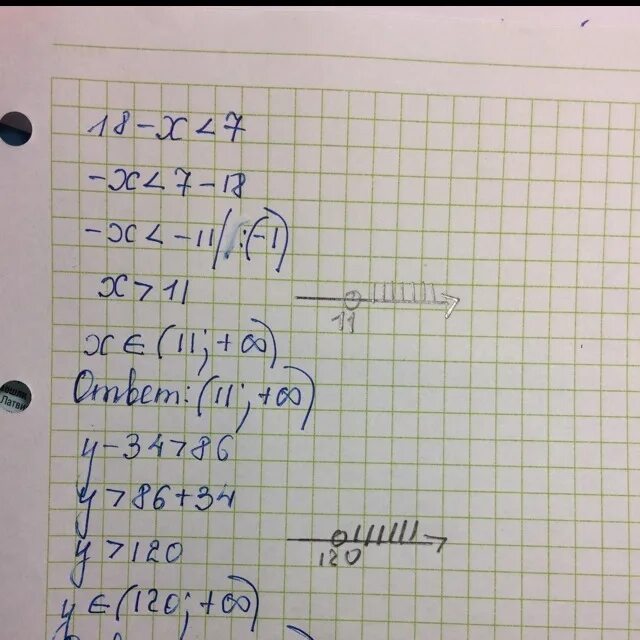 18-x<7
-x<7-18
-x<-11/:(-1)
x>11
11
x∈(11;+∞)
Ответ:(11;+∞)
y-34>86
y>86+34
y>120
120
y∈(120;+∞)
Латви